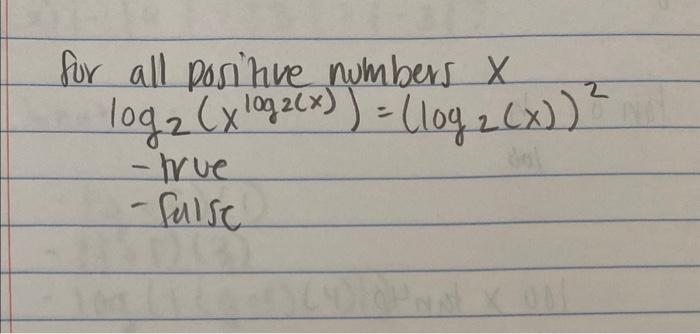 for all positive numbers x
log₂(x^log₂(x)) = (log₂(x))²
- true
- false